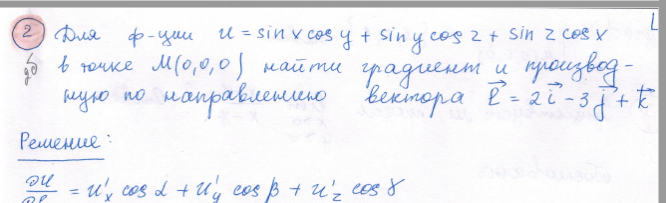 ② Для ф-ции u = sin x cos y + sin y cos z + sin z cos x
в точке M(0,0,0) найти градиент и производ-
ную по направлению вектора l⃗ = 2i⃗ - 3j⃗ + k⃗
Решение:
∂u/∂l = u'x cos α + u'y cos β + u'z cos γ